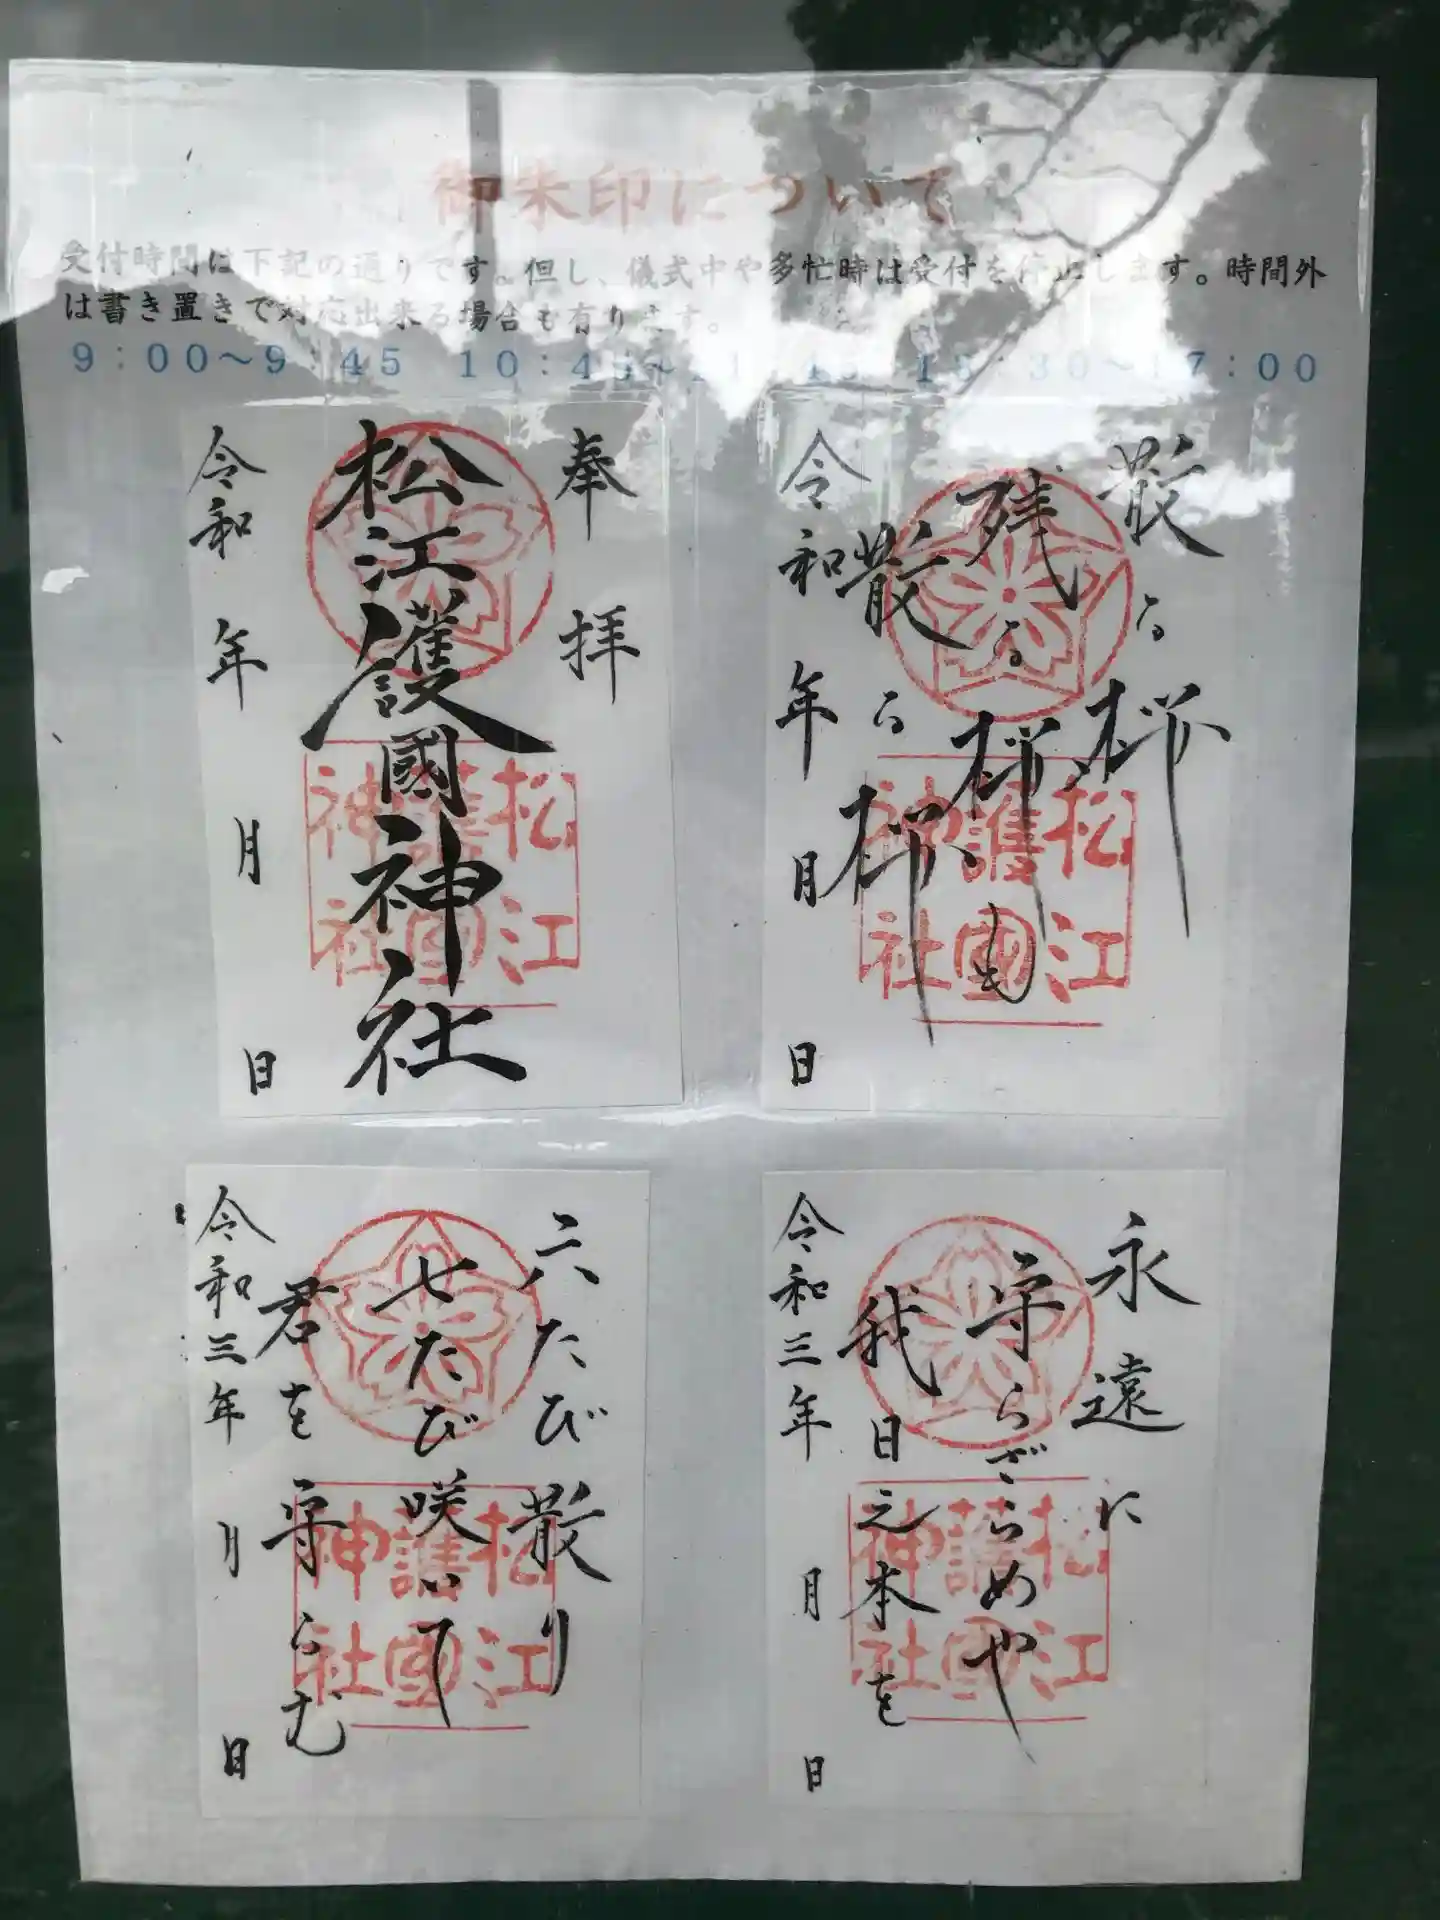 御朱印について
受付時間は下記の通りです。但し、儀式中や多忙時は受付を停止します。時間外
は書き置きで対応出来る場合も有ります。
9：00～9：45 10：45～11：45 13：30～17：00
奉拝
松江護國神社
令和 年 月 日
松江
護國
神社
散る桜
残る桜も
散る桜
令和 年 月 日
松江
護國
神社
六たび散り
七たび咲いて
君を守らむ
令和三年 月 日
松江
護國
神社
永遠に
守らざらめや
我日之本を
令和三年 月 日
松江
護國
神社